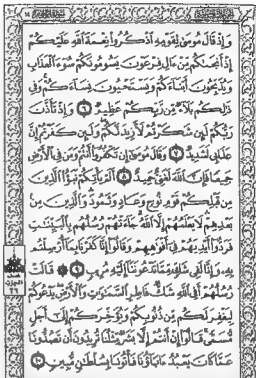 وَإِذْ قَالَ مُوسَىٰ لِقَوْمِهِ ٱذْكُرُوا۟ نِعْمَةَ ٱللَّهِ عَلَيْكُمْ
إِذْ أَنجَىٰكُم مِّنْ ءَالِ فِرْعَوْنَ يَسُومُونَكُمْ سُوٓءَ ٱلْعَذَابِ
وَيُذَبِّحُونَ أَبْنَآءَكُمْ وَيَسْتَحْيُونَ نِسَآءَكُمْ وَفِى
ذَٰلِكُم بَلَآءٌ مِّن رَّبِّكُمْ عَظِيمٌ ٦ وَإِذْ تَأَذَّنَ
رَبُّكُمْ لَئِن شَكَرْتُمْ لَأَزِيدَنَّكُمْ وَلَئِن كَفَرْتُمْ إِنَّ
عَذَابِى لَشَدِيدٌ ٧ وَقَالَ مُوسَىٰٓ إِن تَكْفُرُوٓا۟ أَنتُمْ وَمَن فِى ٱلْأَرْضِ
جَمِيعًا فَإِنَّ ٱللَّهَ لَغَنِىٌّ حَمِيدٌ ٨ أَلَمْ يَأْتِكُمْ نَبَؤُا۟ ٱلَّذِينَ
مِن قَبْلِكُمْ قَوْمِ نُوحٍ وَعَادٍ وَثَمُودَ وَٱلَّذِينَ مِنۢ
بَعْدِهِمْ لَا يَعْلَمُهُمْ إِلَّا ٱللَّهُ جَآءَتْهُمْ رُسُلُهُم بِٱلْبَيِّنَـٰتِ
فَرَدُّوٓا۟ أَيْدِيَهُمْ فِىٓ أَفْوَٰهِهِمْ وَقَالُوٓا۟ إِنَّا كَفَرْنَا بِمَآ أُرْسِلْتُم
بِهِۦ وَإِنَّا لَفِى شَكٍّ مِّمَّا تَدْعُونَنَآ إِلَيْهِ مُرِيبٍ ٩ قَالَتْ
رُسُلُهُمْ أَفِى ٱللَّهِ شَكٌّ فَاطِرِ ٱلسَّمَـٰوَٰتِ وَٱلْأَرْضِ يَدْعُوكُمْ
لِيَغْفِرَ لَكُم مِّن ذُنُوبِكُمْ وَيُؤَخِّرَكُمْ إِلَىٰٓ أَجَلٍ
مُّسَمًّى قَالُوٓا۟ إِنْ أَنتُمْ إِلَّا بَشَرٌ مِّثْلُنَا تُرِيدُونَ أَن تَصُدُّونَا
عَمَّا كَانَ يَعْبُدُ ءَابَآؤُنَا فَأْتُونَا بِسُلْطَـٰنٍ مُّبِينٍ ١٠